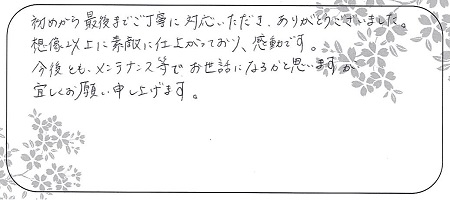 初めから最後までご丁寧に対応いただき、ありがとうございました。
想像以上に素敵に仕上がっており、感動です。
今後とも、メンテナンス等でお世話になるかと思いますが
宜しくお願い申し上げます。